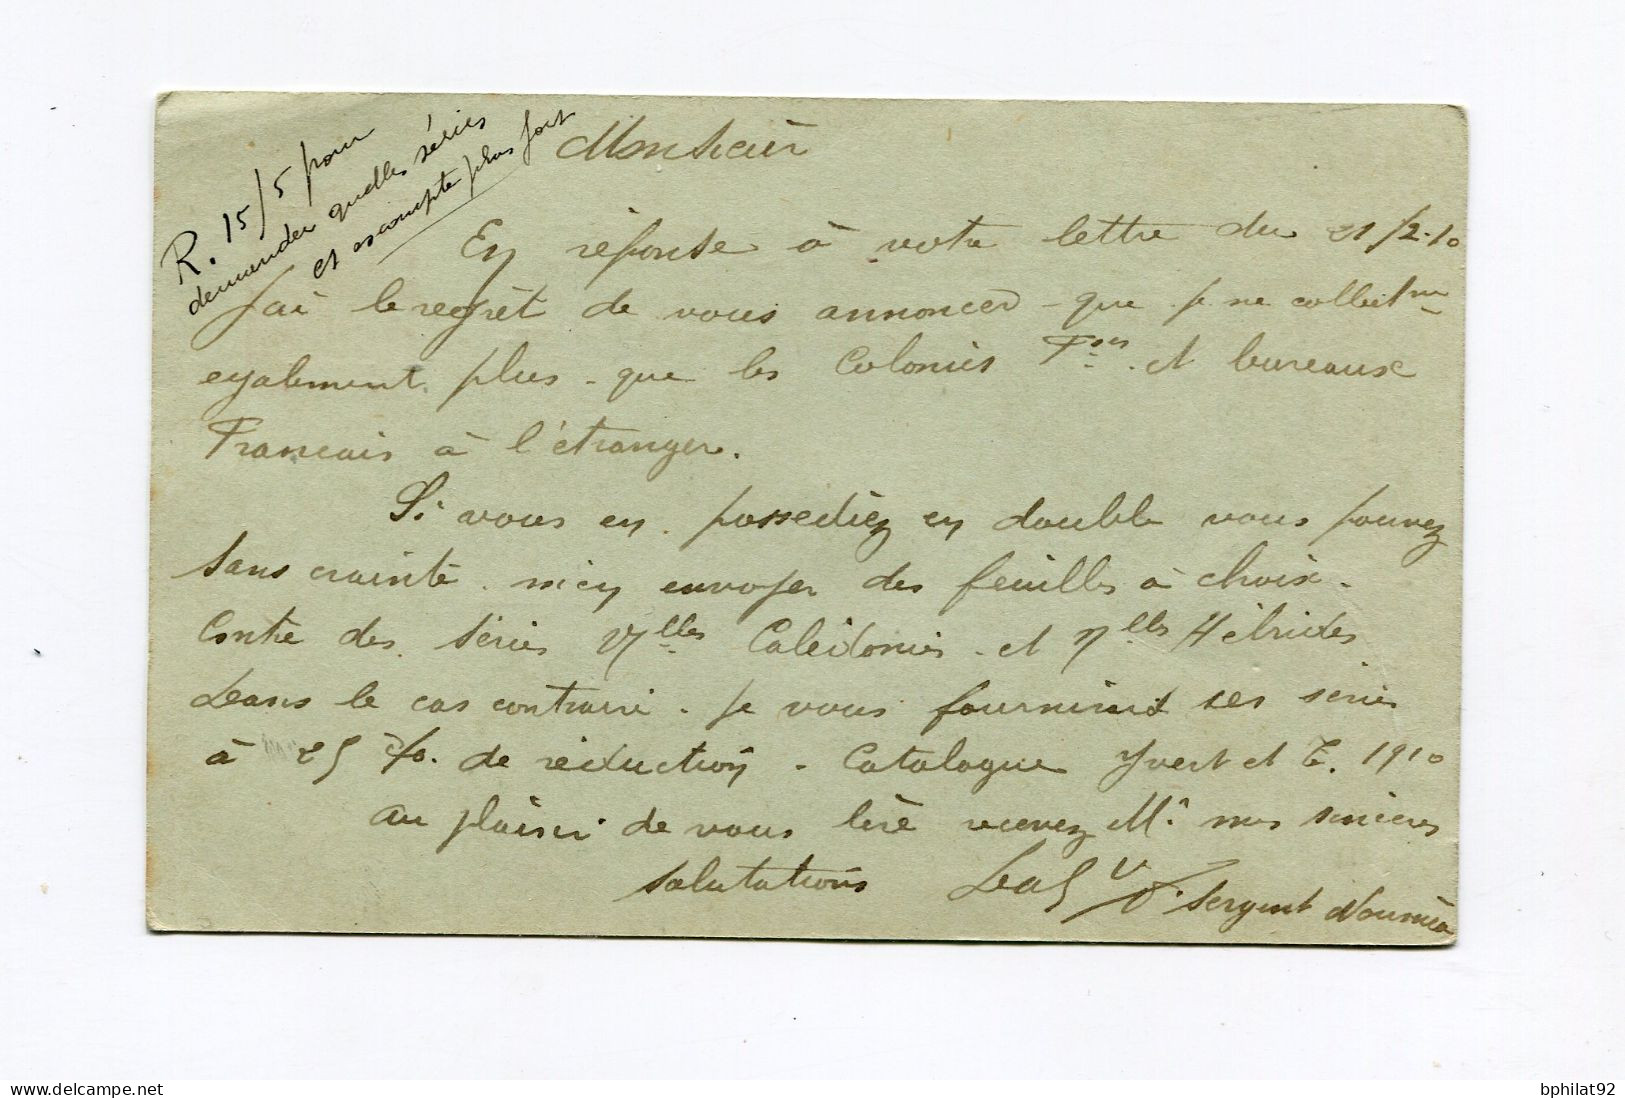 R. 15/5 pour
demander quelles séries
et escompte plus fort
Monsieur
En réponse à votre lettre du 21/2.10
J'ai le regret de vous annoncer - que je ne collect^nne
egalement plus - que les Colonies F^ses et bureaux
Francais à l'étranger.
Si vous en possediez en double vous pouvez
sans crainte m'en envoyer des feuilles à choix -
Contre des séries N^lles Calédonies - et N^lles Hébrides
Dans le cas contraire - je vous fournirais ces séries
à 25 %. de réduction - Catalogue Yvert et T. 1910
au plaisir de vous lire recevez M^r mes sincères
salutations
Sergent Nouméa
delcampe.net
bphilat92